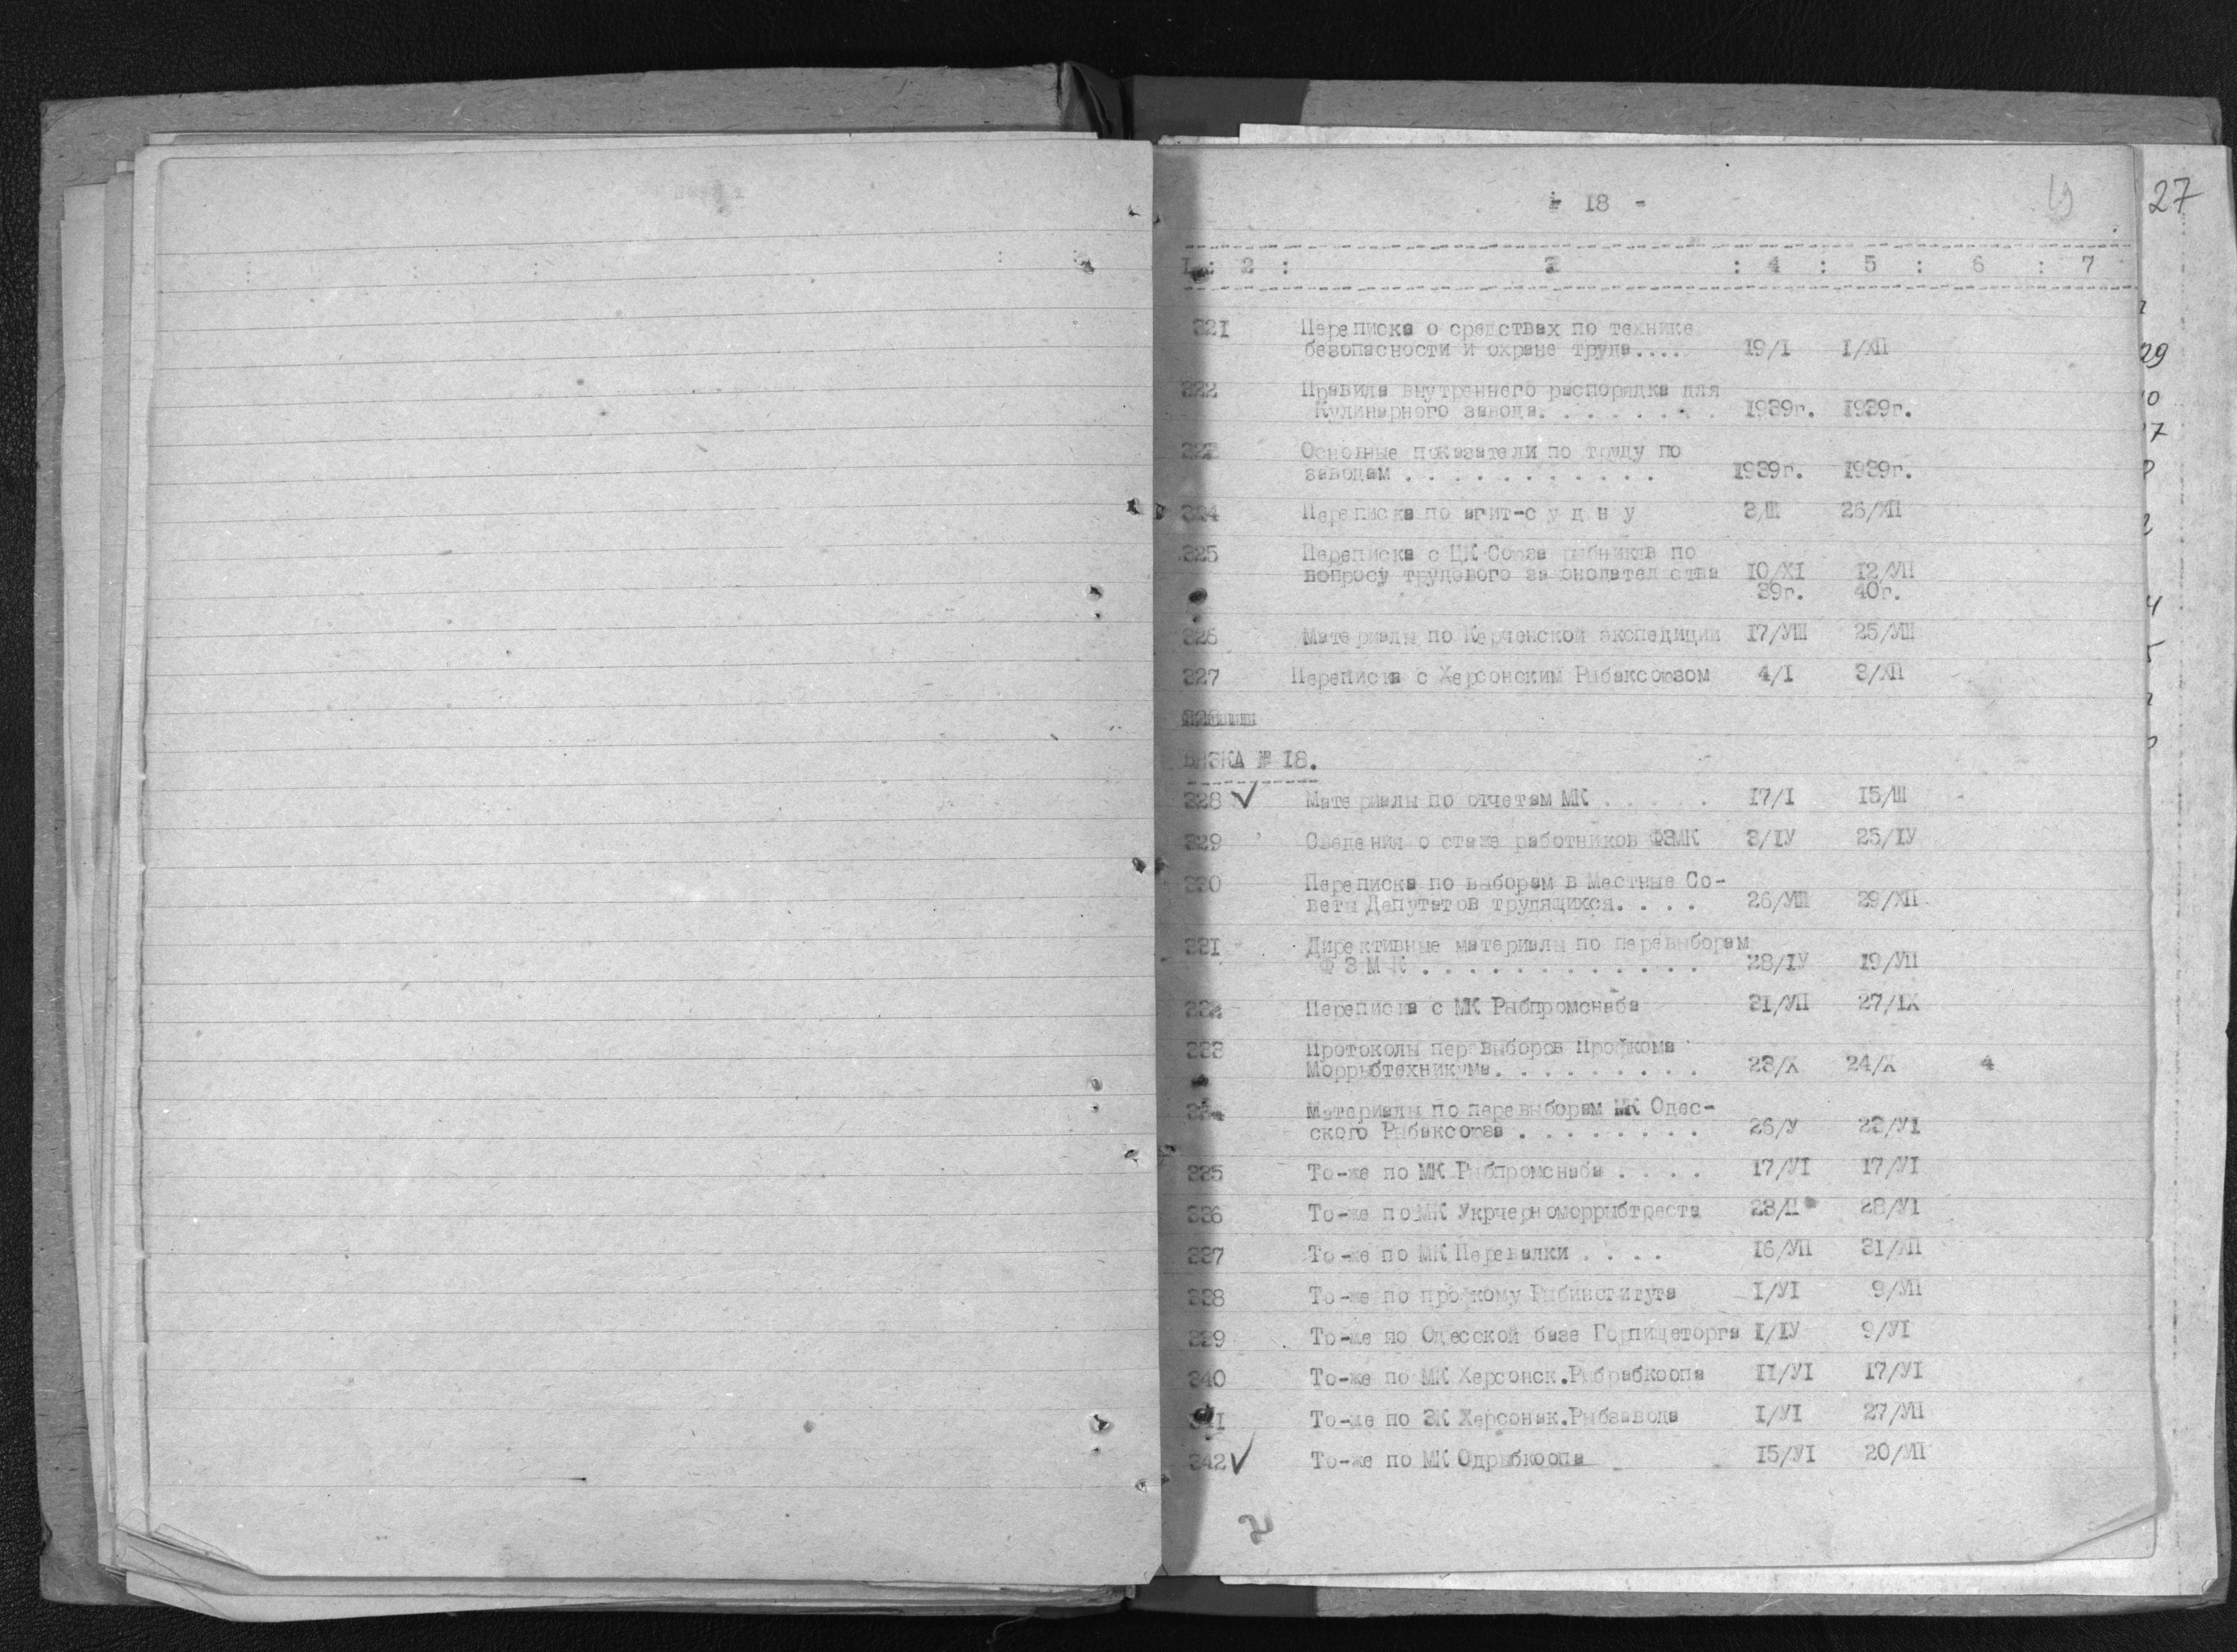 - 18 -
19
27
1 : 2 : 3 : 4 : 5 : 6 : 7
321 Переписка о средствах по технике
безопасности и охране труда.... 19/I I/ХП
322 Правила внутреннего распорядка для
Кулинарного завода. . . . . . . . 1939г. 1939г.
323 Основные показатели по труду по
заводам . . . . . . . . . . . 1939г. 1939г.
324 Переписка по агит-с у д н у 3/Ш 26/ХП
325 Переписка с ЦК Союза рыбников по
вопросу трудового за онодател ства 10/XI 12/УП
39г. 40г.
326 Материалы по Керченской экспедиции 17/УШ 25/УШ
327 Переписка с Херсонским Рыбаксоюзом 4/I 3/ХП
ВЯЗКА № 18.
328 ✓ Материалы по отчетам МК . . . . . 17/I 15/Ш
329 Сведения о стаже работников ФЗМК 3/IУ 25/IУ
330 Переписка по выборам в Местные Со-
веты Депутатов трудящихся. . . . 26/УШ 29/ХП
331 Директивные материалы по перевыборам
Ф З М К . . . . . . . . . . . . 28/IУ 19/УП
332 Переписка с МК Рыбпромснаба 31/УП 27/IX
333 Протоколы перевыборов Профкома
Моррыбтехникума. . . . . . . . . 23/X 24/X 4
334 Материалы по перевыборам МК Одес-
ского Рыбаксоюза . . . . . . . . 26/У 23/УI
335 То-же по МК Рыбпромснаба . . . . 17/УI 17/УI
336 То-же по МК Укрчерноморрыбтреста 23/П 28/УI
337 То-же по МК Перевалки . . . . 16/УП 31/ХП
338 То-же по профкому Рыбинститута I/УI 9/УП
339 То-же по Одесской базе Горпищеторга I/IУ 9/УI
340 То-же по МК Херсонск.Рыбрабкоопа II/УI 17/УI
341 То-же по ЗК Херсонск.Рыбзавода I/УI 27/УП
342 ✓ То-же по МК Одрыбкоопа 15/УI 20/УП